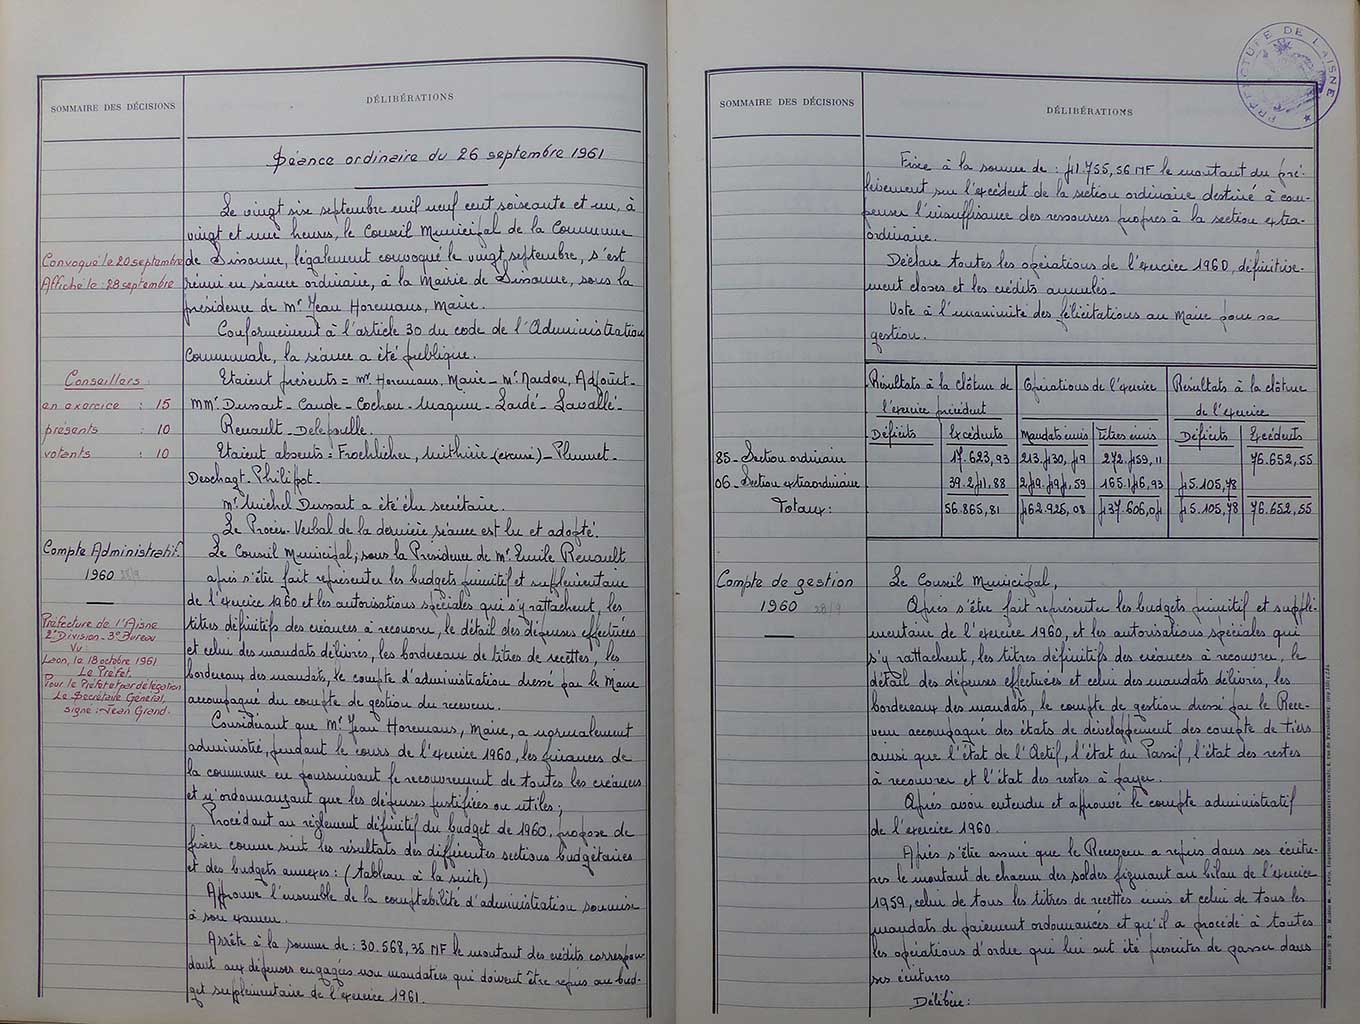 SOMMAIRE DES DÉCISIONS
DÉLIBÉRATIONS
Séance ordinaire du 26 septembre 1961
Le vingt sise septembre mil neuf cent soiseante et un, à
vingt et une heures, le Conseil Municipal de la Commune
Convoqué le 20 septembre
de Sissonne, légalement convoqué le vingt septembre, s'est
Affiché le : 28 septembre
réuni en séance ordinaire, à la Mairie de Sissonne, sous la
présidence de Mr Jean Horemans, Maire.
Conformément à l'article 30 du code de l'Administration
Communale, la séance a été publique.
Conseillers :
Etaient présents = Mr Horemans, Maire - Mr Nardou, Adjoint -
en exercice : 15
MMrs Dussart - Caude - Cochou - Maquin - Lardé - Lavallé -
présents : 10
Renault - Delepoulle.
votants : 10
Etaient absents = Froehlicher, (excusé) - Plumet -
Deschagt - Philipot -
Mr Michel Dussart a été élu secrétaire.
Le Procès-Verbal de la dernière séance est lu et adopté.
Compte Administratif
1960 28/9
Le Conseil Municipal, sous la Présidence de Mr Emile Renault
après s'être fait représenter les budgets primitif et supplémentaire
de l'exercice 1960 et les autorisations spéciales qui s'y rattachent, les
Préfecture de l'Aisne
2e Division - 3e Bureau
Vu :
Laon, le 18 octobre 1961
Le Préfet,
Pour le Préfet et par délégation
Le Secrétaire Général,
signé : Jean Grand.
titres définitifs des créances à recouvrer, le détail des dépenses effectuées
et celui des mandats délivrés, les bordereaux de titres de recettes, les
bordereaux des mandats, le compte d'administration dressé par le Maire
accompagné du compte de gestion du receveur.
Considérant que Mr Jean Horemans, Maire, a normalement
administré, pendant le cours de l'exercice 1960, les finances de
la commune en poursuivant le recouvrement de toutes les créances
et n'ordonnançant que les dépenses justifiées ou utiles ;
Procédant au règlement définitif du budget de 1960, propose de
fixer comme suit les résultats des différentes sections budgétaires
et des budgets annexes : (tableau à la suite)
Approuve l'ensemble de la comptabilité d'administration soumise
à son examen.
Arrête à la somme de : 30.568,35 MF le montant des crédits correspon-
dant aux dépenses engagées non mandatées qui doivent être repris au bud-
get supplémentaire de l'exercice 1961.
SOMMAIRE DES DÉCISIONS
DÉLIBÉRATIONS
PRÉFECTURE DE L'AISNE
Fixe à la somme de : 41.755,56 MF le montant du pré-
lèvement sur l'excédent de la section ordinaire destiné à com-
penser l'insuffisance des ressources propres à la section extra-
ordinaire.
Déclare toutes les opérations de l'exercice 1960, définitive-
ment closes et les crédits annulés.
Vote à l'unanimité des félicitations au Maire pour sa
gestion.
Résultats à la clôture de l'exercice précédent
Opérations de l'exercice
Résultats à la clôture de l'exercice
Déficits Excédents Mandats émis Titres émis Déficits Excédents
85 - Section ordinaire 17.623,93 213.430,49 272.459,11 76.652,55
06 - Section extraordinaire 39.241,88 249.494,59 165.146,93 45.105,78
Totaux : 56.865,81 462.925,08 437.606,04 45.105,78 76.652,55
Compte de gestion
1960 28/9
Le Conseil Municipal,
Après s'être fait représenter les budgets primitif et supplé-
mentaire de l'exercice 1960, et les autorisations spéciales qui
s'y rattachent, les titres définitifs des créances à recouvrer, le
détail des dépenses effectuées et celui des mandats délivrés, les
bordereaux des mandats, le compte de gestion dressé par le Rece-
veur accompagné des états de développement des compte de tiers
ainsi que l'état de l'Actif, l'état du Passif, l'état des restes
à recouvrer et l'état des restes à payer.
Après avoir entendu et approuvé le compte administratif
de l'exercice 1960.
Après s'être assuré que le Receveur a repris dans ses écritu-
res le montant de chacun des soldes figurant au bilan de l'exercice
1959, celui de tous les titres de recettes émis et celui de tous les
mandats de paiement ordonnancés et qu'il a procédé à toutes
les opérations d'ordre qui lui ont été prescrites de passer dans
ses écritures
Délibère :